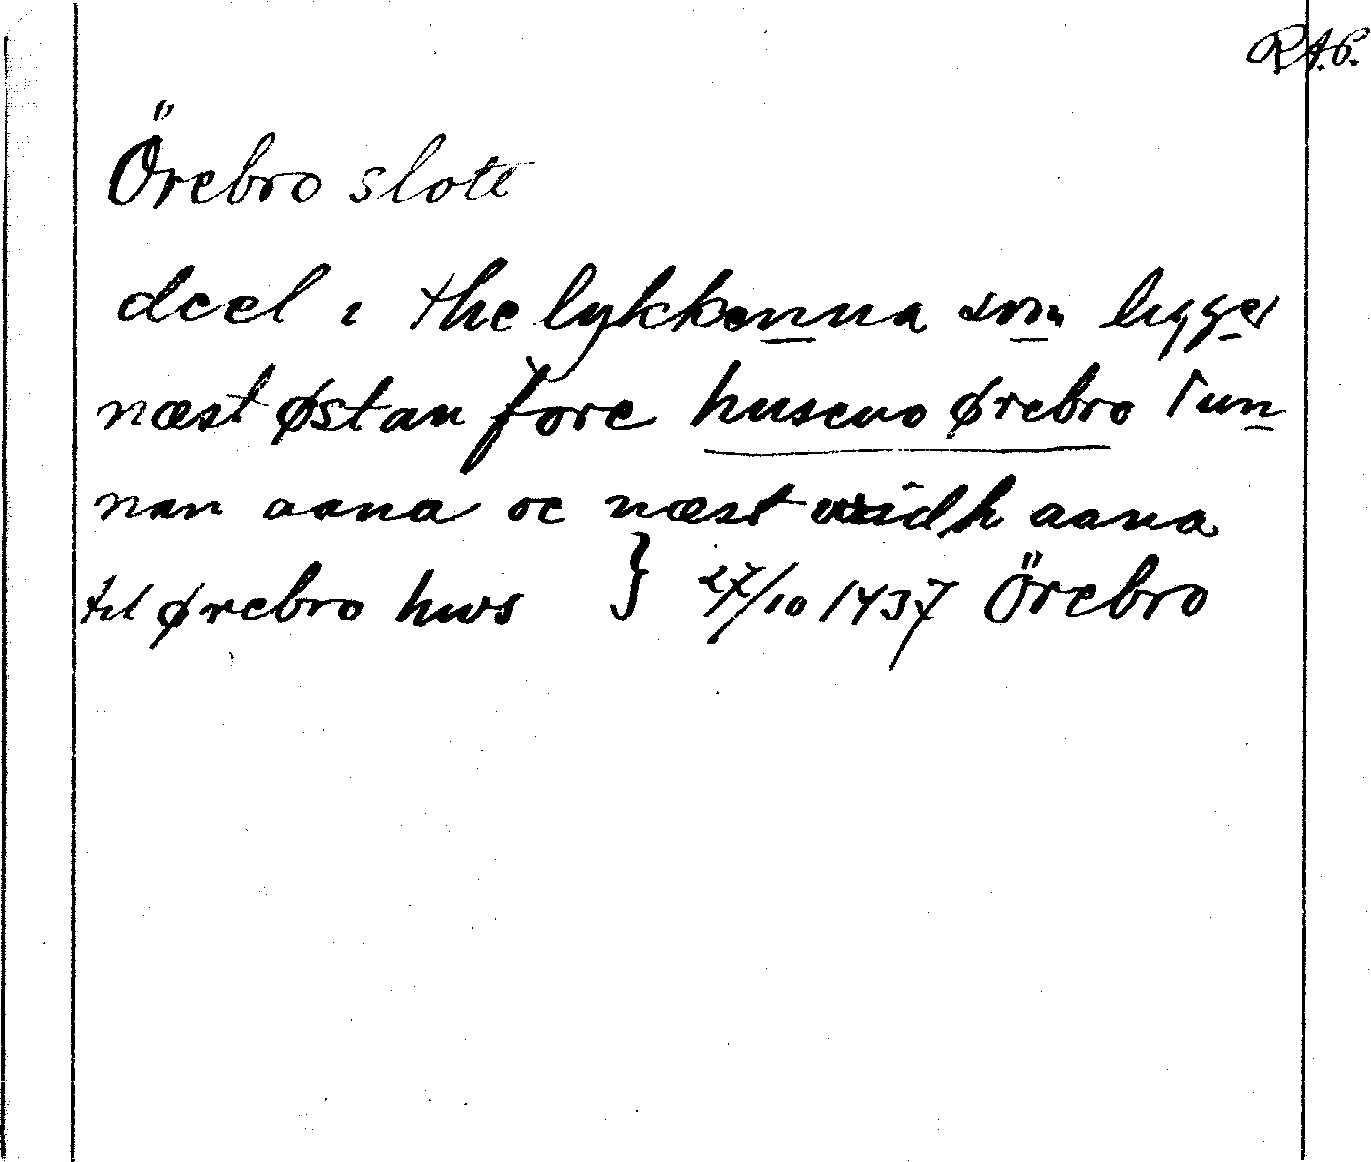 RAP.
Örebro slott
deel i the lykkenna som ligger
næst østan fore huseno ørebro sun
nan aana oc næst widh aana
til ørebro hws } 27/10 1437 Örebro